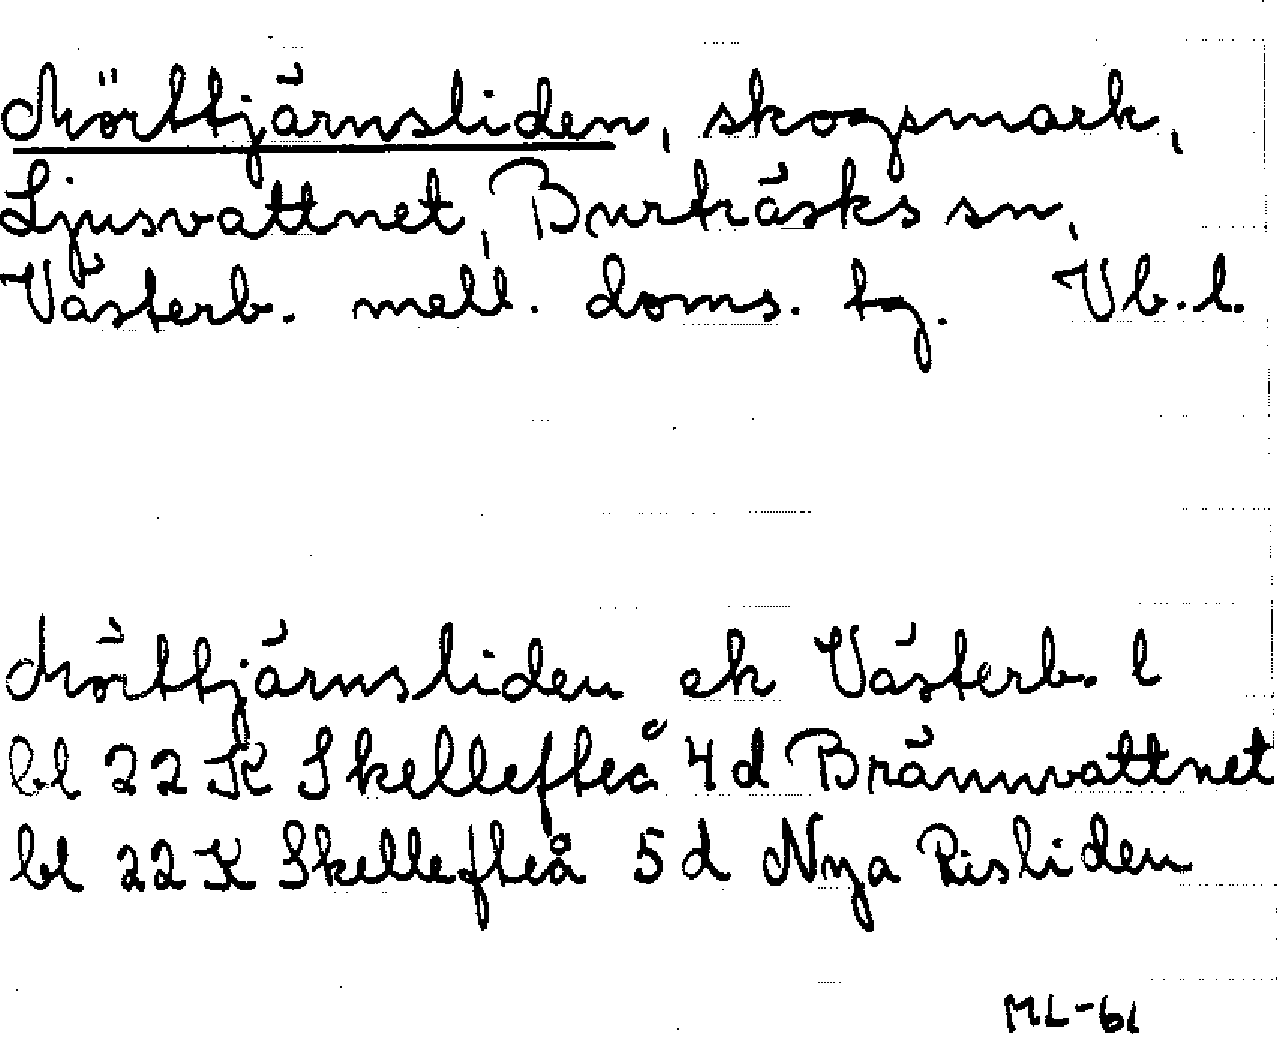 Mörttjärnsliden, skogsmark,
Ljusvattnet, Burträsks sn,
Västerb. mell. doms. tg. Vb. l.
Mörttjärnsliden ek Västerb. l
bl 22 K Skellefteå 4 d Brännvattnet
bl 22 K Skellefteå 5 d Nya Risliden
ML-61